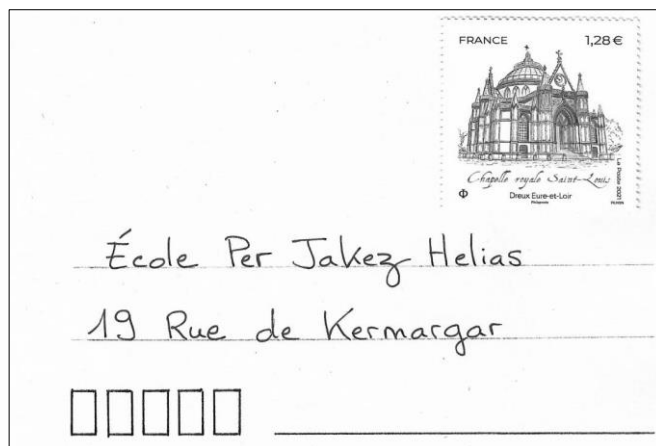 FRANCE 1,28 €
Chapelle royale Saint-Louis
Dreux Eure-et-Loir
La Poste 2021
École Per Jakez Helias
19 Rue de Kermargar